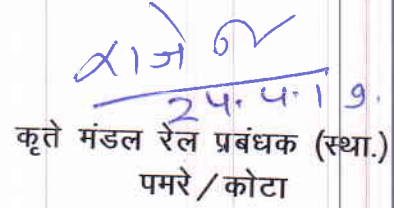 राजे
24.4.19.
कृते मंडल रेल प्रबंधक (स्था.)
पमरे/कोटा